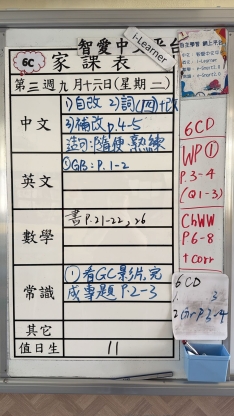 智愛中文平台
i-Learner
6C
家課表
第三週九月十六日(星期二)
中文
1)自改 2)詞(四)+改
3)補改p.4-5
造句:隨便.熟練
英文
①GB: P.1-2
數學
書P.21-22, 26
常識
①看GC影片,完
成專題P.2-3
其它
值日生
11
自主學習 網上平台
6CD
WP①
P.3-4
(Q1-3)
ChWW
P6-8
+ corr
6CD
1. 3